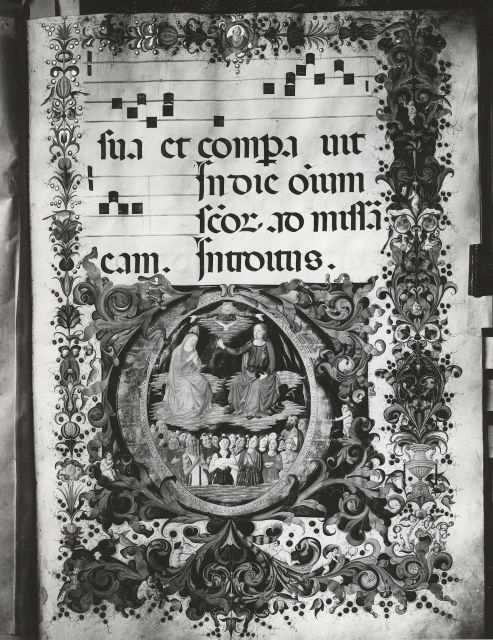 sua et compa uit
In die oīum
scōꝝ. ad missā
cam. Introitus.